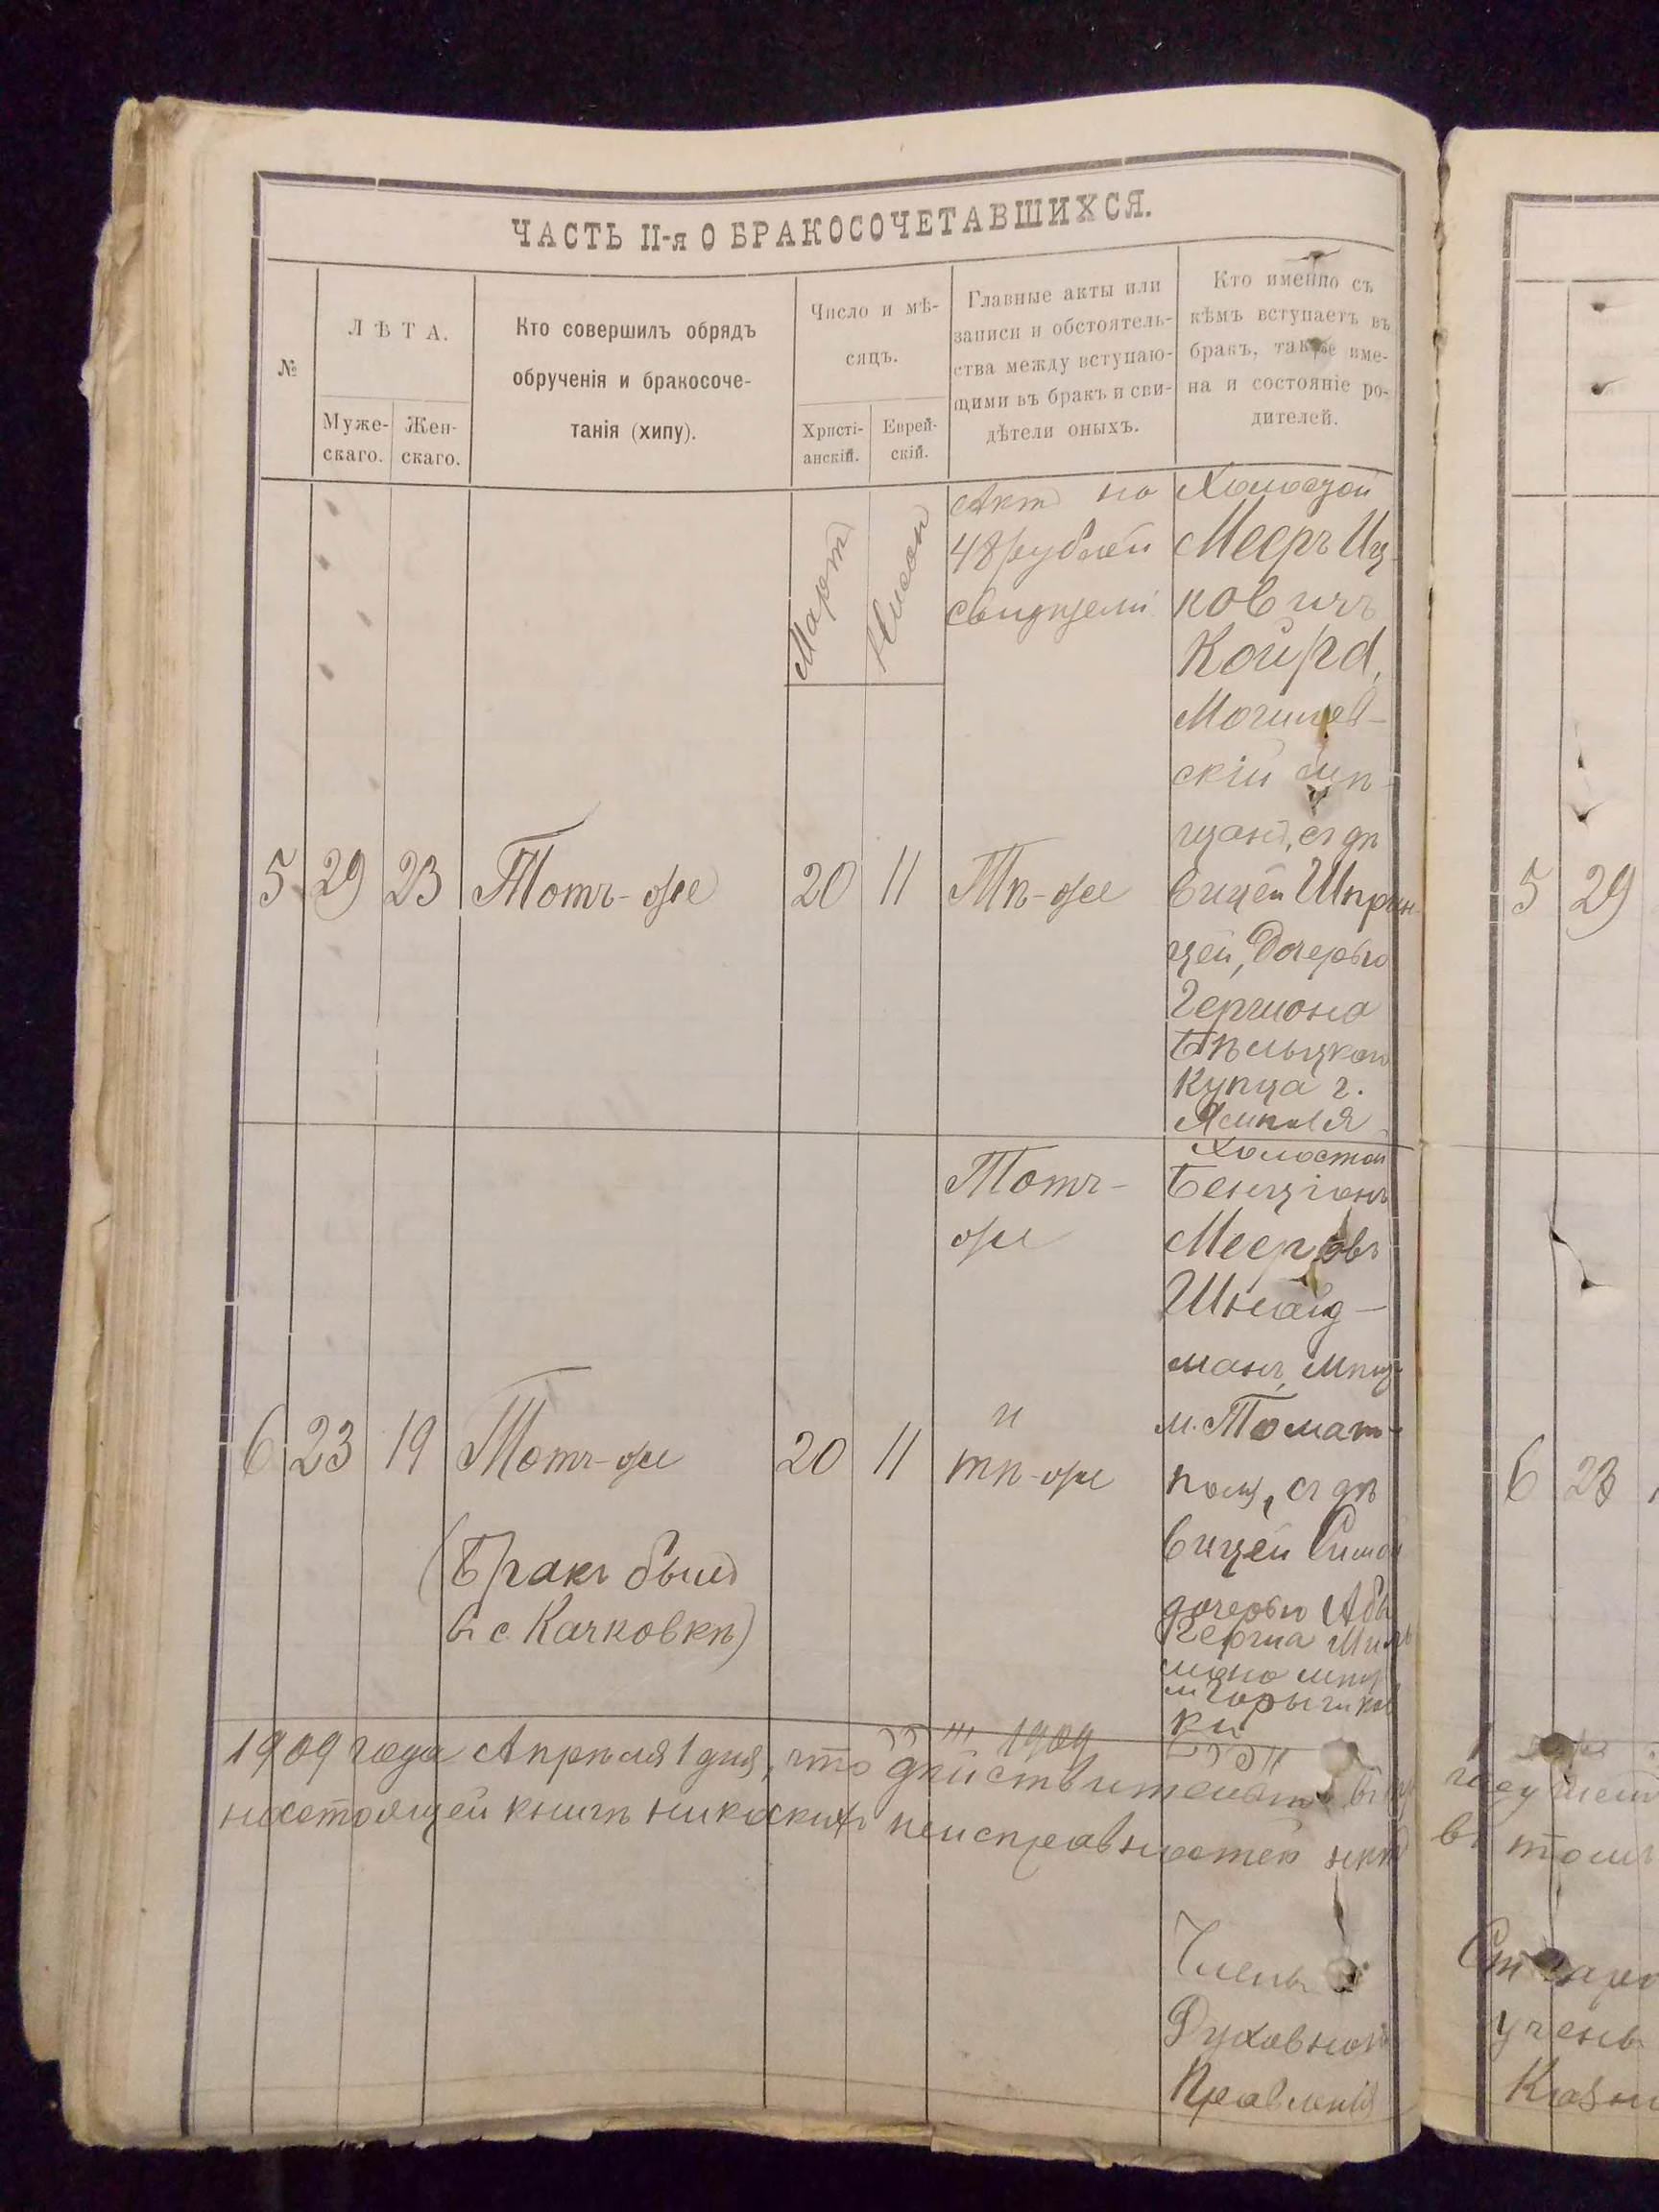 ЧАСТЬ II-я О БРАКОСОЧЕТАВШИХСЯ.
№
ЛѢТА.
Муже-
скаго.
Жен-
скаго.
Кто совершилъ обрядъ
обрученія и бракосоче-
танія (хипу).
Число и мѣ-
сяцъ.
Христі-
анскій.
Еврей-
скій.
Главные акты или
записи и обстоятель-
ства между вступаю-
щими въ бракъ и сви-
дѣтели оныхъ.
Кто именно съ
кѣмъ вступаетъ въ
бракъ, также име-
на и состояніе ро-
дителей.
Мартъ
Нисонъ
Актъ на
48 рублей
свидѣтели
5 29 23 Тотъ-же 20 11 Тѣ-же
Холостой
Мееръ Иц-
ковичъ
Койрa,
Могилев-
скій мѣ-
щанъ, съ дѣ
вицей Шприн-
цей, Дочерью
Гершона
Бѣльцкаго
Купца г.
Ямполя
6 23 19 Тотъ-же 20 11
(Бракъ былъ
въ с. Качковкѣ)
Тотъ-
же
и
тѣ-же
Холостой
Бенціонъ
Мееровъ
Шнайд-
манъ, мѣщ.
м. Томаш-
поль, съ дѣ
вицей Симой
дочерью Абы
Герша
мана мѣщ
ки
1909 года Апрѣля 1 дня, что дѣйствительно въ
настоящей книгѣ никакихъ неисправностей нѣтъ
1909
Членъ
Духовнаго
Правленія
5 29
6 23
въ томъ
ученый
Казн